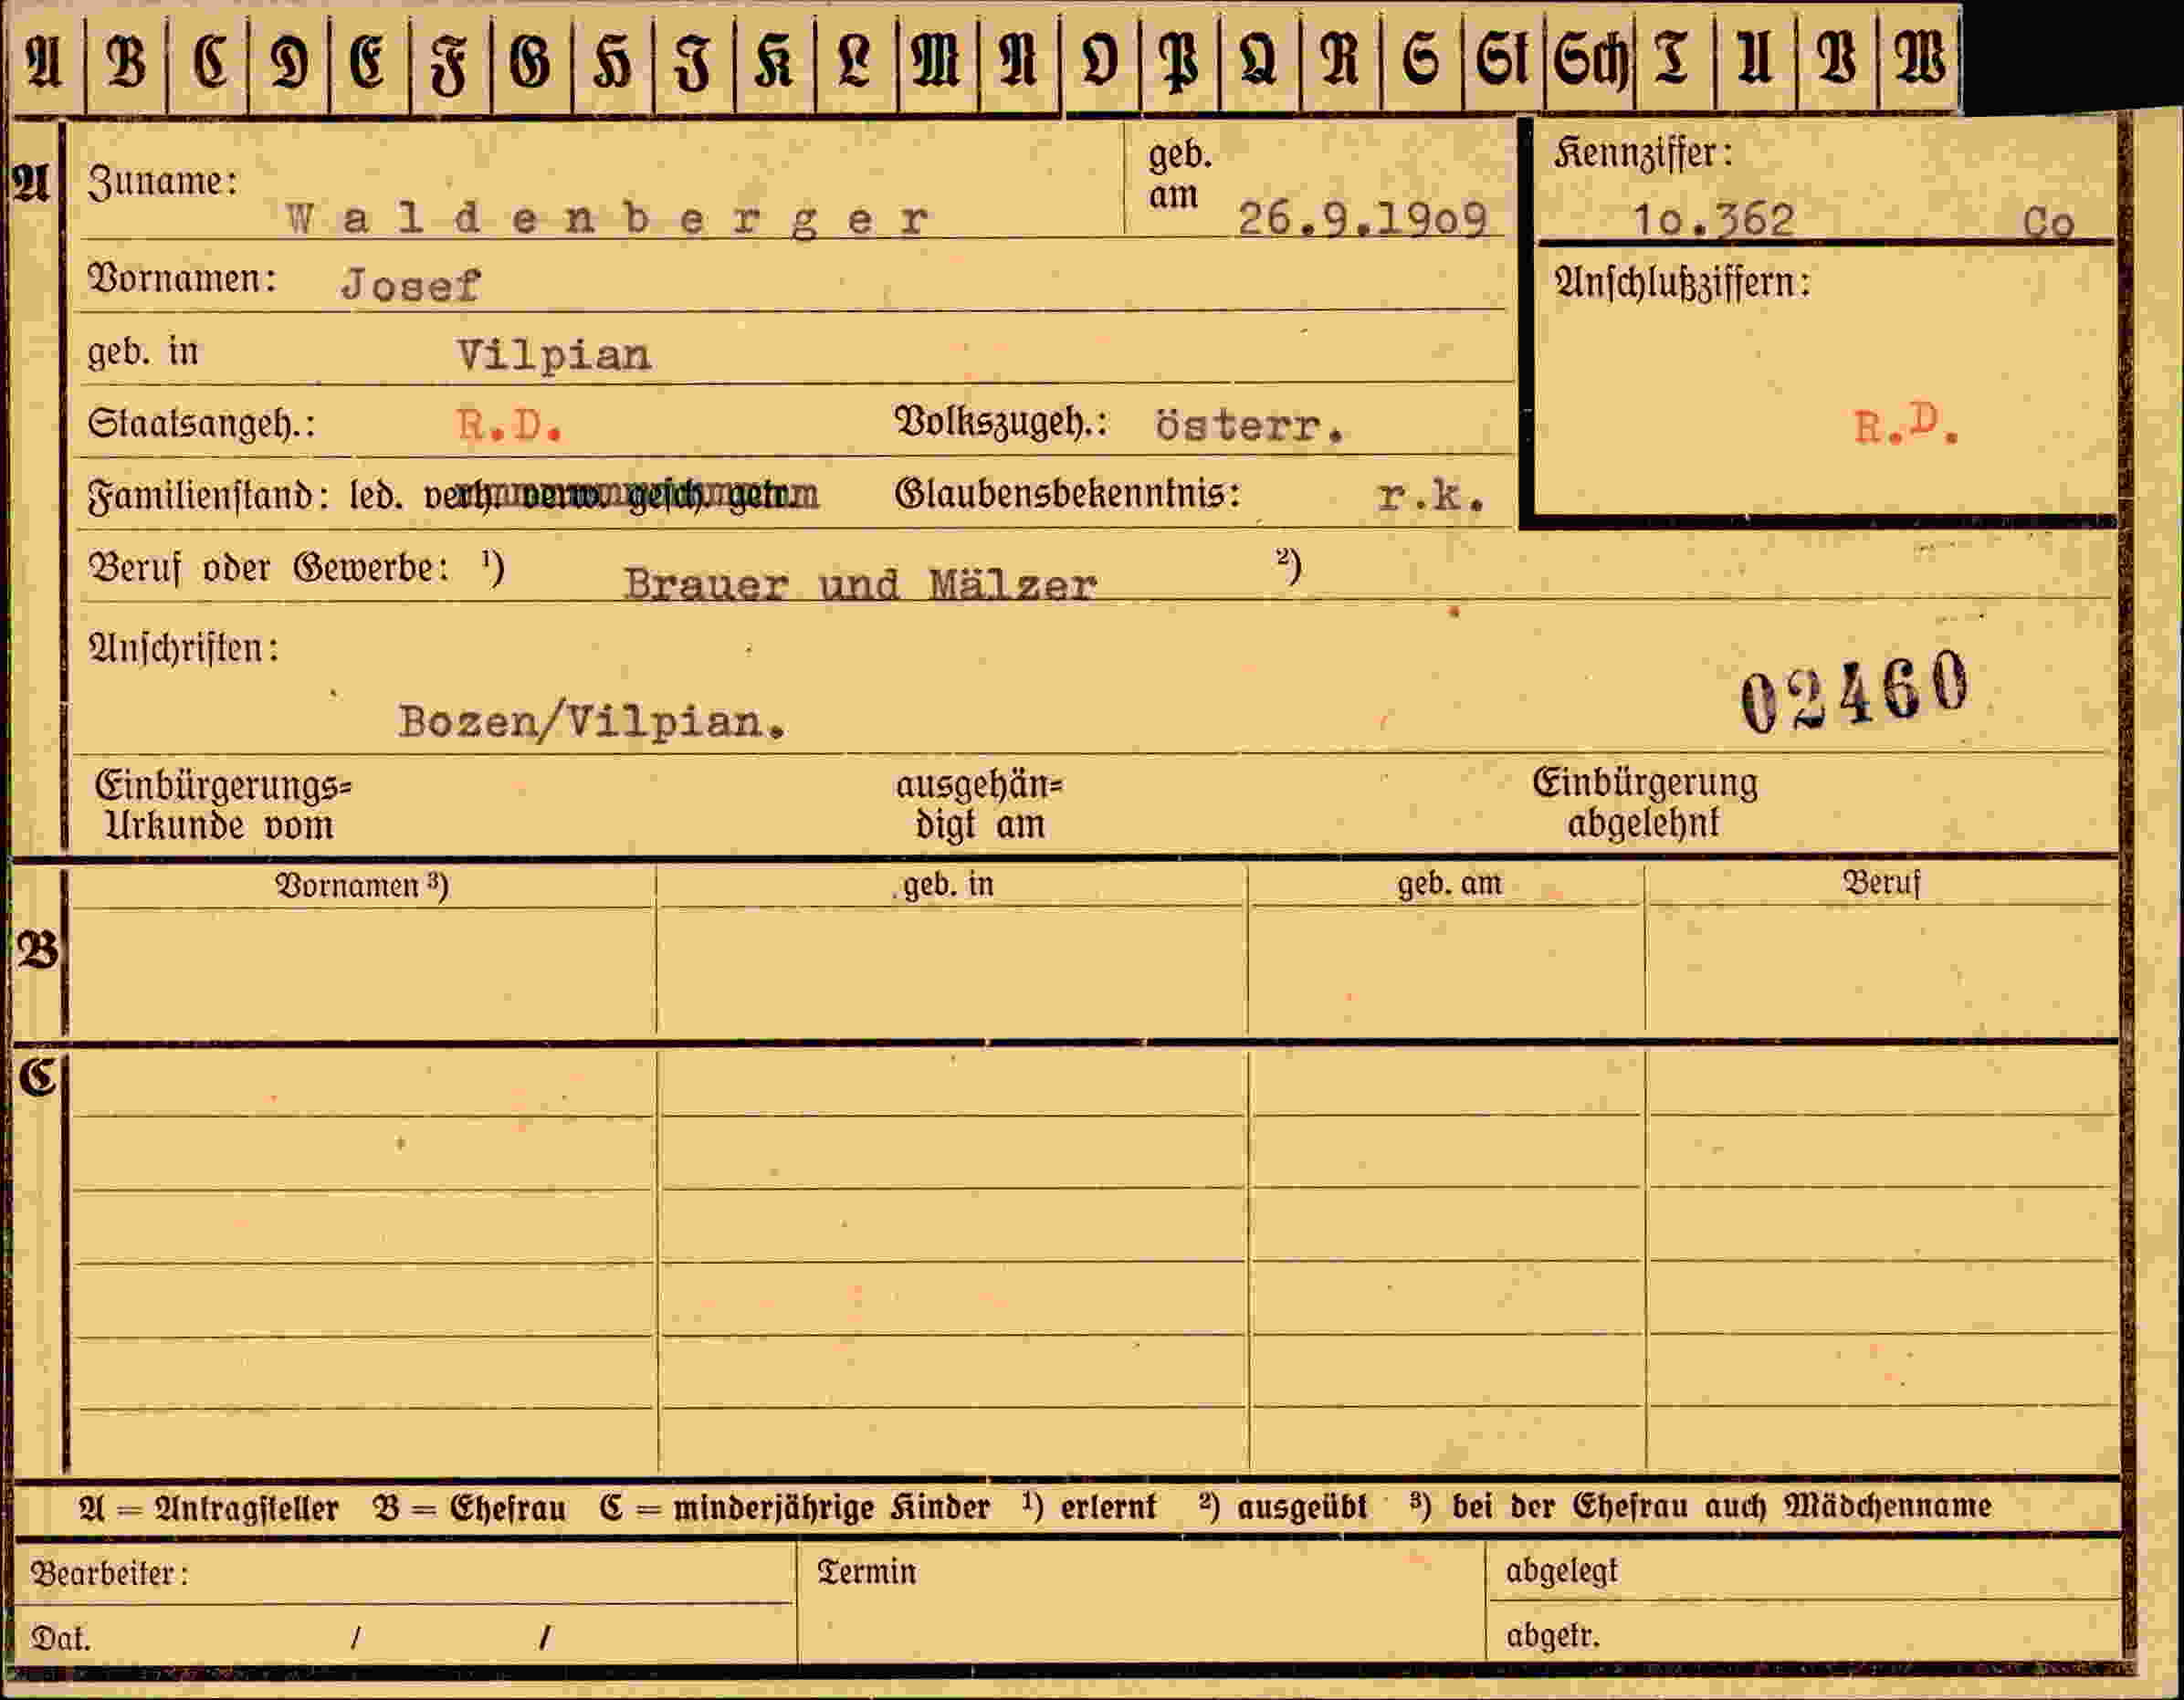 A B C D E F G H I K L M N O P Q R S St Sch T U V W
A Zuname: Waldenberger geb. am 26.9.19o9 Kennziffer: 1o.362 Co
Vornamen: Josef Anschlußziffern:
geb. in Vilpian
Staatsangeh.: R.D. Volkszugeh.: österr. R.D.
Familienstand: led. verh. verw. gesch. getr. Glaubensbekenntnis: r.k.
Beruf oder Gewerbe: ¹) Brauer und Mälzer ²)
Anschriften:
02460
Bozen/Vilpian.
Einbürgerungs= ausgehän= Einbürgerung
Urkunde vom digt am abgelehnt
Vornamen ³) geb. in geb. am Beruf
B
C
A = Antragsteller B = Ehefrau C = minderjährige Kinder ¹) erlernt ²) ausgeübt ³) bei der Ehefrau auch Mädchenname
Bearbeiter: Termin abgelegt
Dat. / / abgetr.